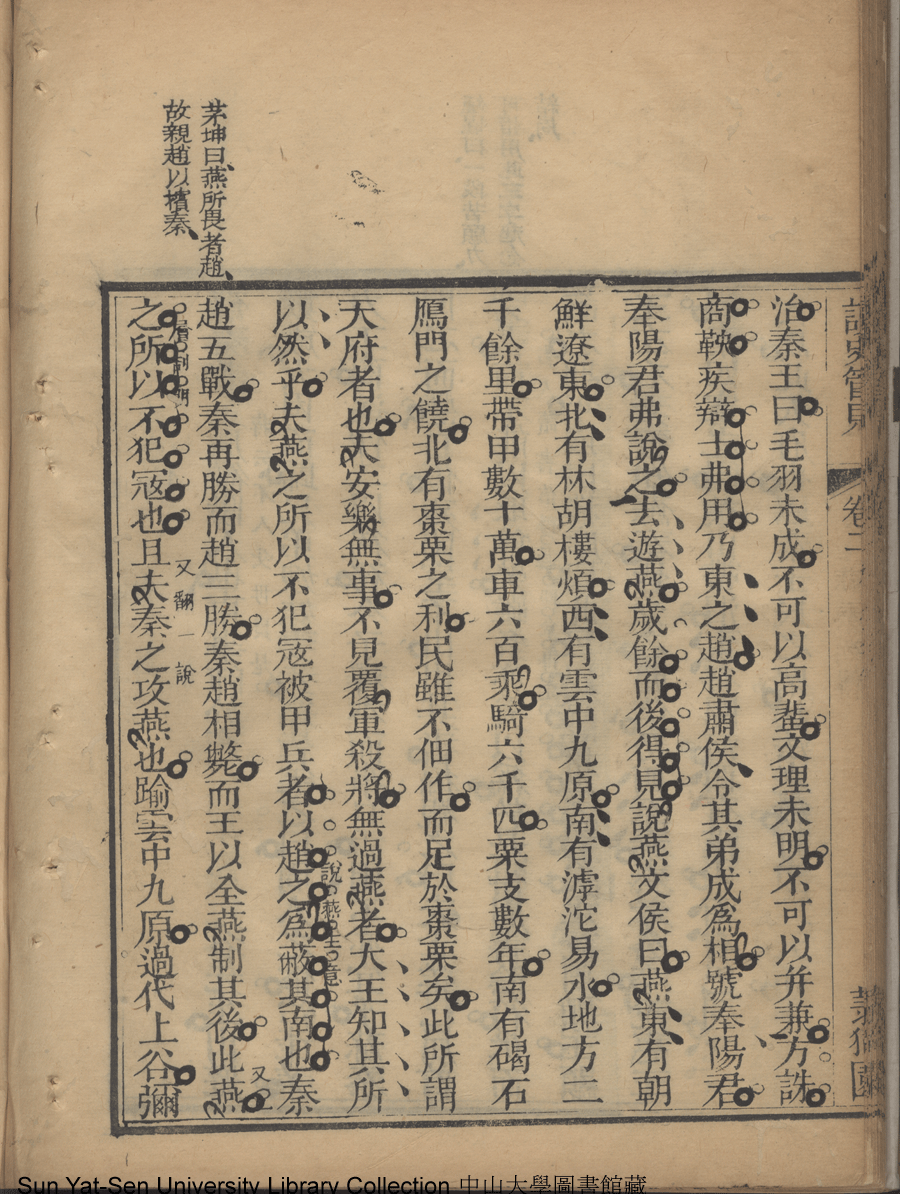 治秦王曰毛羽未成不可以高蜚文理未明不可以幷兼方誅
商鞅疾辯士弗用乃東之趙趙肅侯令其弟成爲相號奉陽君
奉陽君弗說之去遊燕歲餘而後得見說燕文侯曰燕東有朝
鮮遼東北有林胡樓煩西有雲中九原南有滹沱易水地方二
千餘里帶甲數十萬車六百乘騎六千匹粟支數年南有碣石
鴈門之饒北有棗栗之利民雖不佃作而足於棗栗矣此所謂
天府者也夫安樂無事不見覆軍殺將無過燕者大王知其所
以然乎夫燕之所以不犯冦被甲兵者以趙之爲蔽其南也秦
說燕主意
趙五戰秦再勝而趙三勝秦趙相斃而王以全燕制其後此燕
之所以不犯冦也且夫秦之攻燕也踰雲中九原過代上谷彌
又翻一說
又
茅坤曰燕所畏者趙
故親趙以擯秦
卷二
中山大學圖書館藏
Sun Yat-Sen University Library Collection